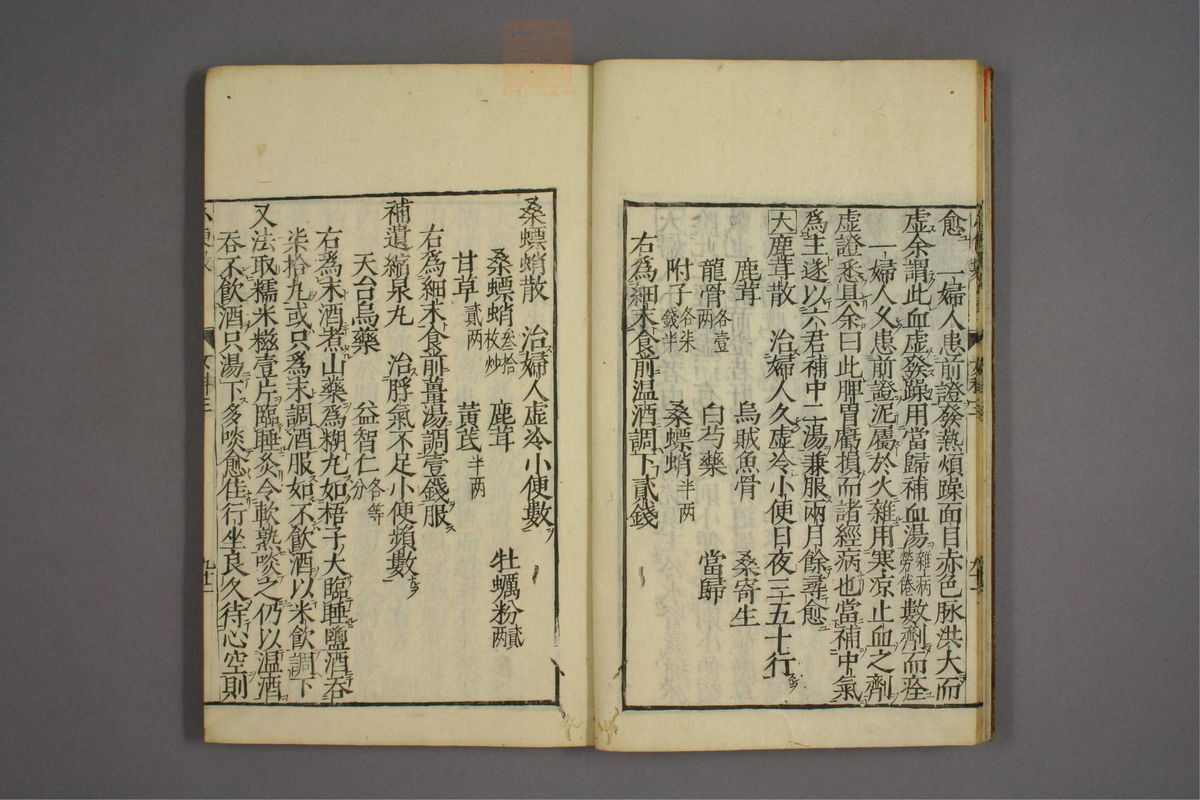 愈　一婦人患前證發熱煩躁面目赤色脉洪大而
虛余謂此血虛發躁用當歸補血湯雜病勞倦數劑而痊
一婦人久患前證泥屬於火雜用寒凉止血之劑
虛證悉具余曰此脾胃虧損而諸經病也當補中氣
爲主遂以六君補中二湯兼服兩月餘尋愈
大鹿茸散　治婦人久虛冷小便日夜三五十行
鹿茸　烏賊魚骨　桑寄生
龍骨各壹两　白芍藥　當歸
附子各柒錢半　桑螵蛸半两
右爲細末食前温酒調下貳錢
桑螵蛸散　治婦人虛冷小便數
桑螵蛸叁拾枚炒　鹿茸　牡蠣粉貳两
甘草貳两　黃芪半两
右爲細末食前薑湯調壹錢服
補遺縮泉丸　治脬氣不足小便頻數
天台烏藥　益智仁各等分
右爲末酒煮山藥爲糊丸如梧子大臨睡鹽酒吞
柒拾丸或只爲末調酒服如不飲酒以米飲調下
又法取糯米糍壹片臨睡炙令軟熟啖之仍以温酒
吞不飲酒只湯下多啖愈佳行坐良久待心空則